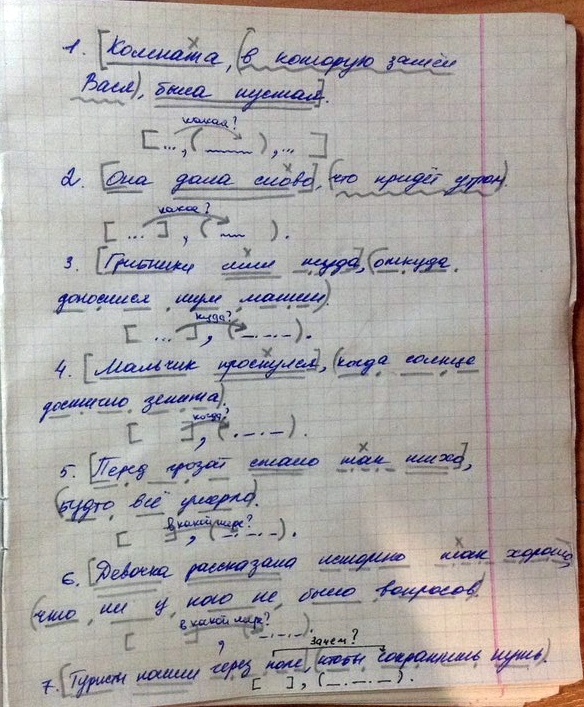 1. [Комната, (в которую зашёл
Вася), была пустая].
какая?
[ ..., ( ), ... ]
2. [Она дала слово], (что придёт утром).
какое?
[ ... ], ( ).
3. [Грибники шли туда], (откуда
доносился шум машин).
куда?
[ ... ], ( ).
4. [Мальчик проснулся], (когда солнце
достигло зенита).
когда?
[ ], ( ).
5. [Перед грозой стало так тихо],
(будто всё умерло).
в какой мере?
[ ], ( ).
6. [Девочка рассказала историю так хорошо],
(что ни у кого не было вопросов)
в какой мере?
[ ], ( ).
зачем?
7. [Туристы пошли через поле], (чтобы сократить путь).
[ ], ( ).